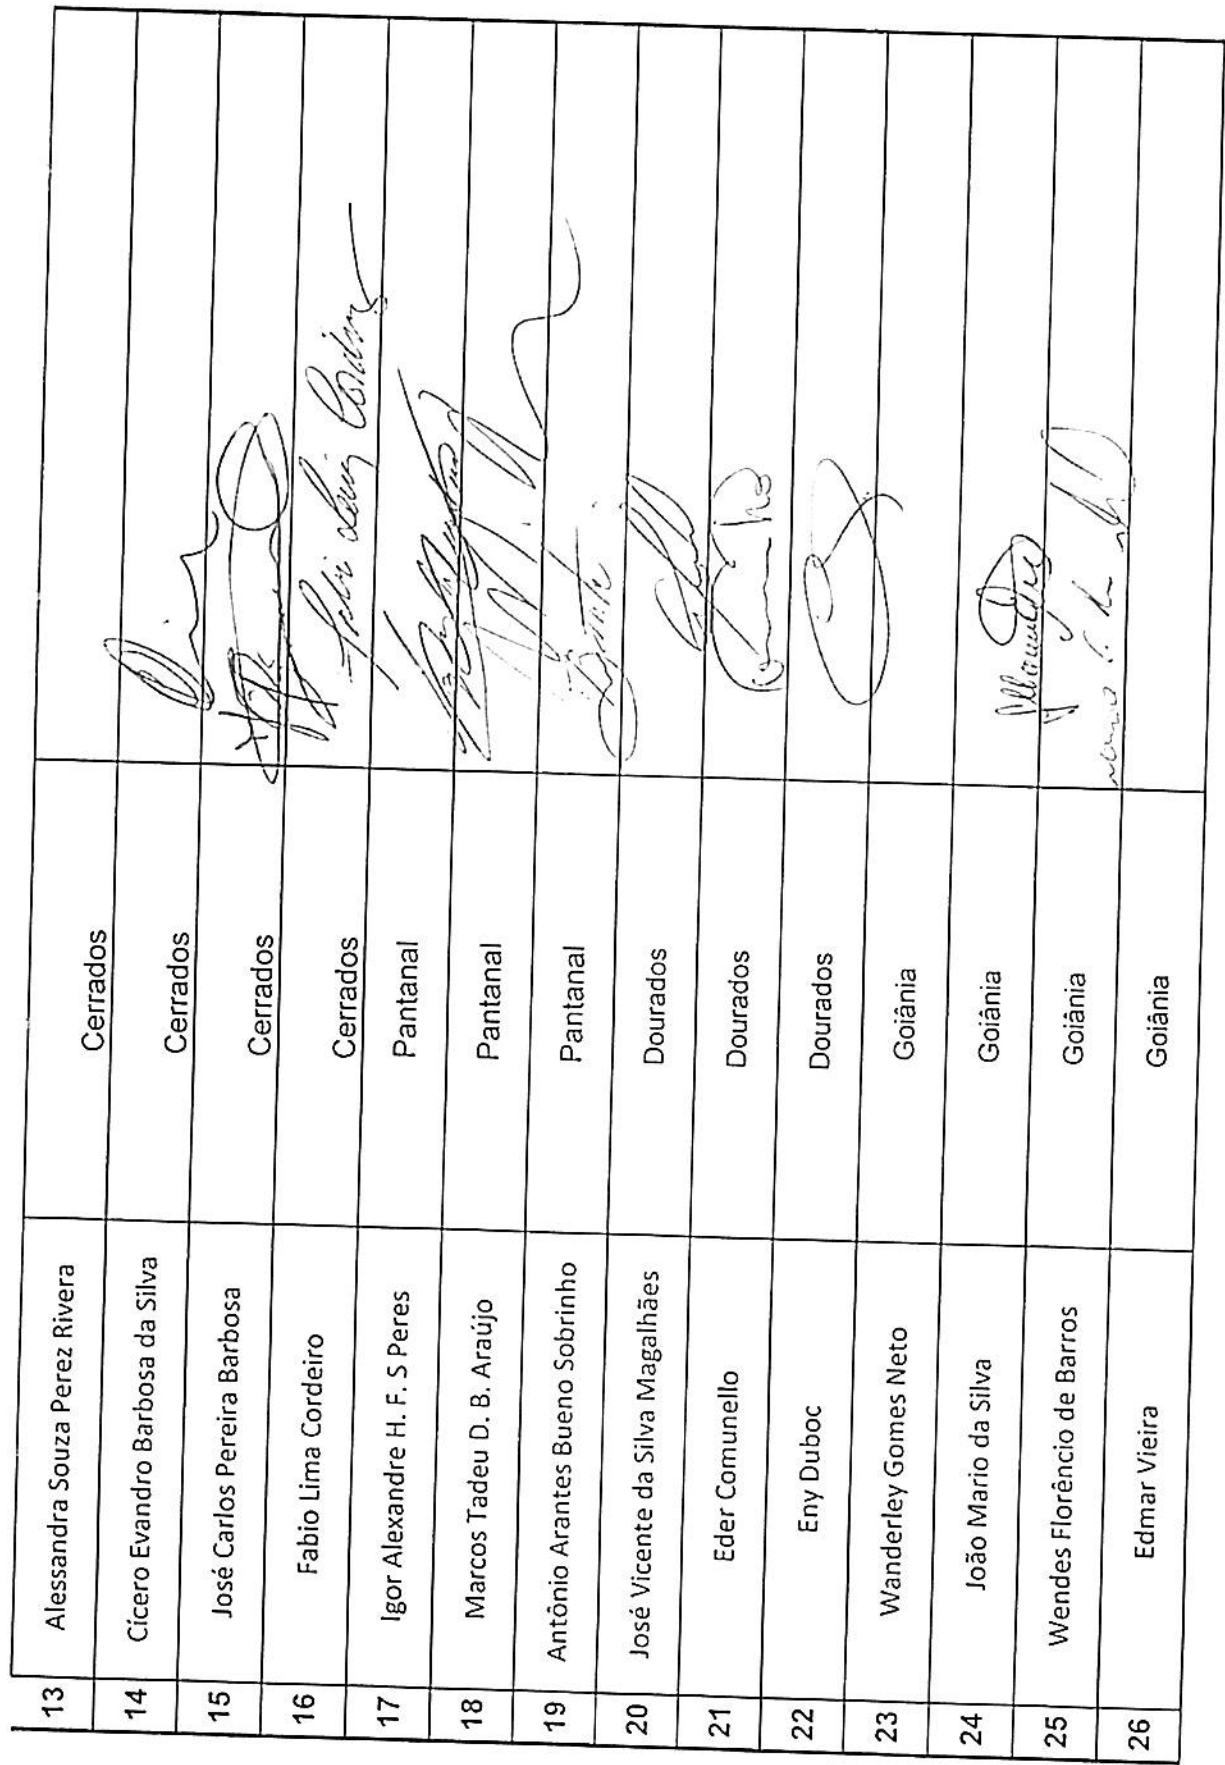 13 Alessandra Souza Perez Rivera Cerrados
14 Cícero Evandro Barbosa da Silva Cerrados
15 José Carlos Pereira Barbosa Cerrados
16 Fabio Lima Cordeiro Cerrados Fabio Lima Cordeiro
17 Igor Alexandre H. F. S Peres Pantanal
18 Marcos Tadeu D. B. Araújo Pantanal
19 Antônio Arantes Bueno Sobrinho Pantanal
20 José Vicente da Silva Magalhães Dourados
21 Eder Comunello Dourados
22 Eny Duboc Dourados
23 Wanderley Gomes Neto Goiânia
24 João Mario da Silva Goiânia
25 Wendes Florêncio de Barros Goiânia
26 Edmar Vieira Goiânia